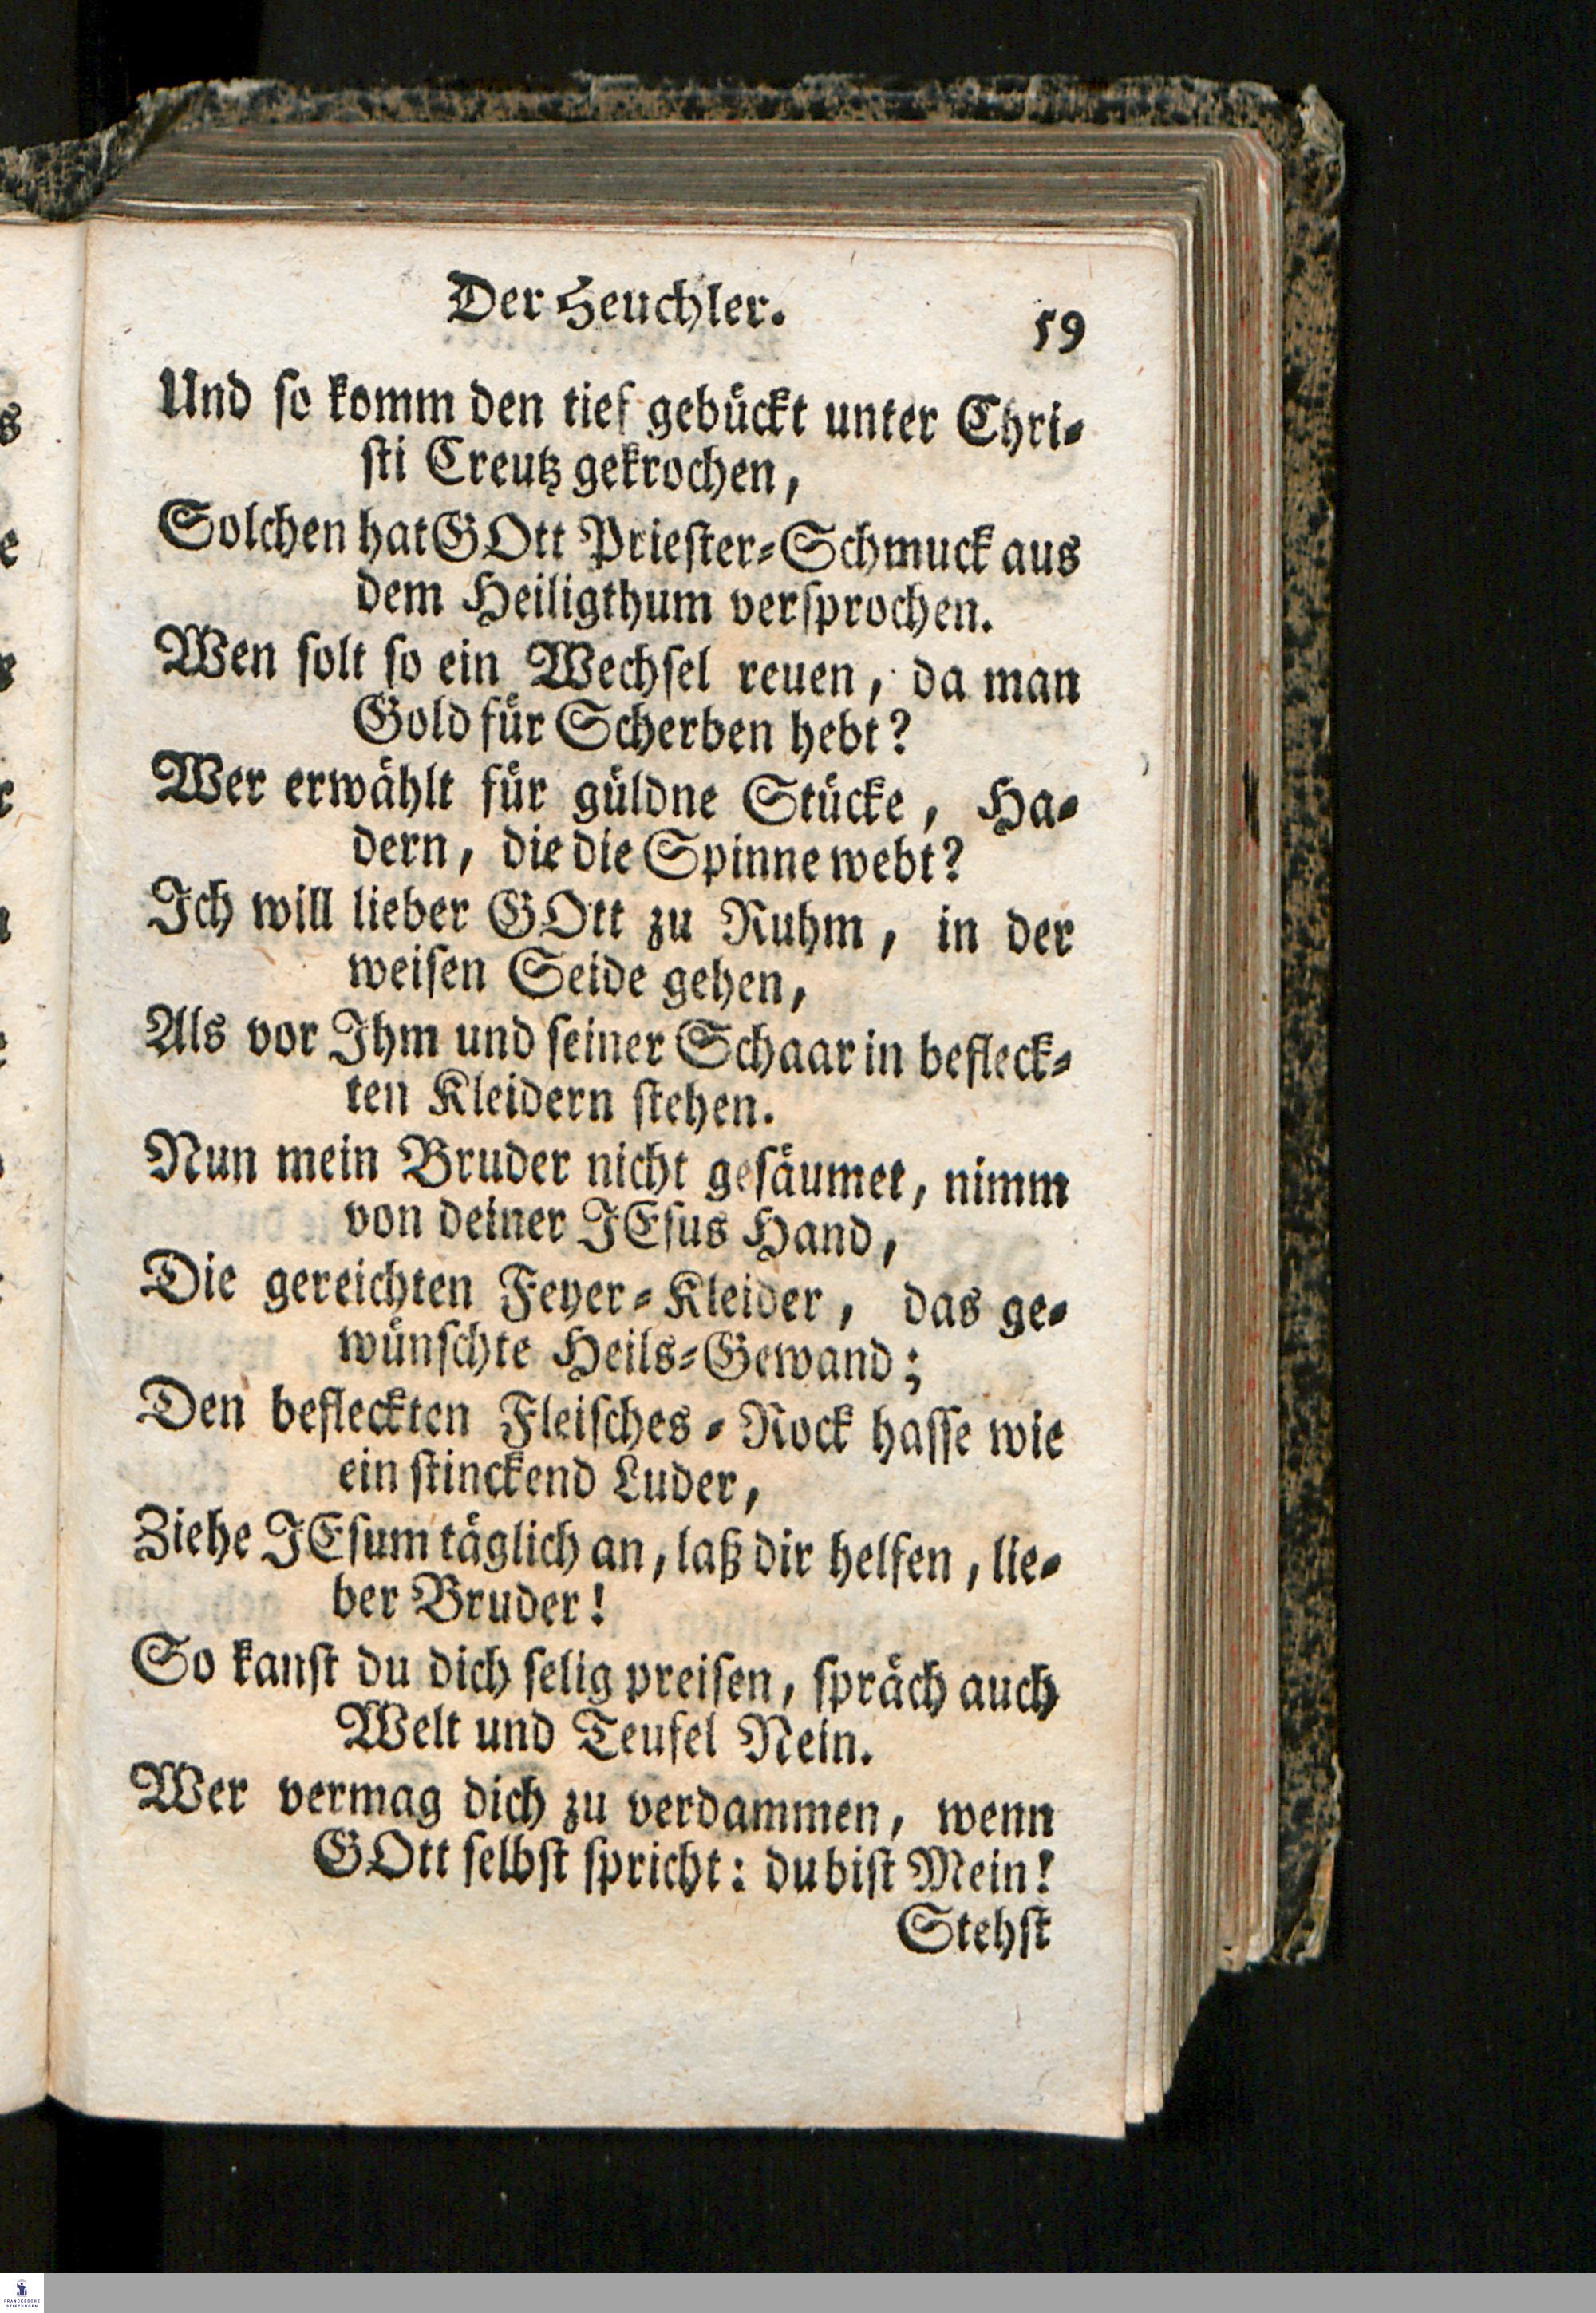 Der Heuchler. 59
Und so komm den tief gebückt unter Chri-
sti Creutz gekrochen,
Solchen hat GOtt Priester-Schmuck aus
dem Heiligthum versprochen.
Wen solt so ein Wechsel reuen, da man
Gold für Scherben hebt?
Wer erwählt für güldne Stücke, Ha-
dern, die die Spinne webt?
Ich will lieber GOtt zu Ruhm, in der
weisen Seide gehen,
Als vor Ihm und seiner Schaar in befleck-
ten Kleidern stehen.
Nun mein Bruder nicht gesäumet, nimm
von deiner JEsus Hand,
Die gereichten Feyer-Kleider, das ge-
wünschte Heils-Gewand;
Den befleckten Fleisches-Rock hasse wie
ein stinckend Luder,
Ziehe JEsum täglich an, laß dir helfen, lie-
ber Bruder!
So kanst du dich selig preisen, spräch auch
Welt und Teufel Nein.
Wer vermag dich zu verdammen, wenn
GOtt selbst spricht: du bist Mein!
Stehst
FRANCKESCHE
STIFTUNGEN